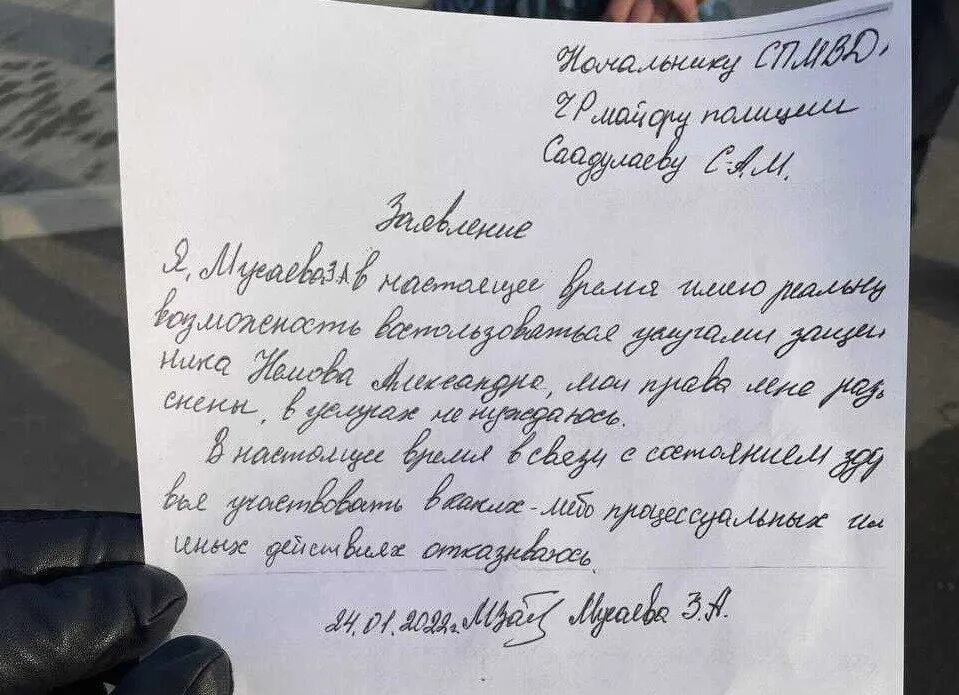 Начальнику СПМВД,
ЧР майору полиции
Саадулаеву С-А.М.
Заявление
Я, Мусаева З А в настоящее время имею реальну
возможность востользоваться услугами защит
ника Немова Александра, мои права мне разъ
снены, в услугах не нуждаюсь.
В настоящее время в связи с состоянием здо
вья участвовать в каких-либо процессуальных ил
иных действиях отказываюсь.
24.01.2022г. Мусаева З.А.